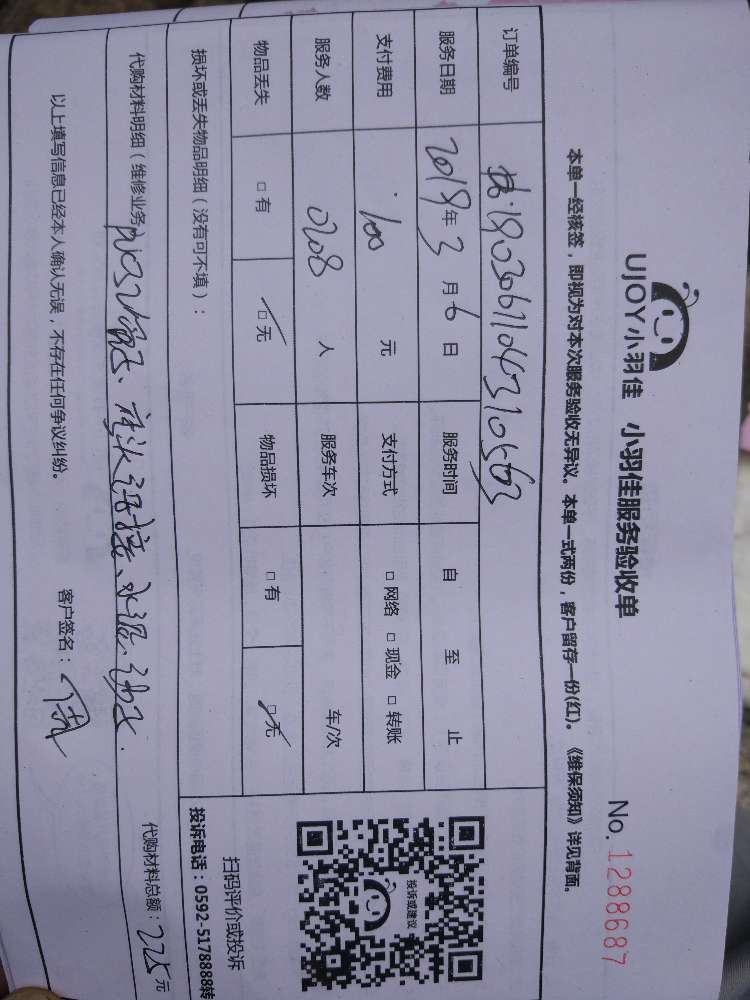 UJOY小羽佳 小羽佳服务验收单 No. 1288687
本单一经核签，即视为对本次服务验收无异议。本单一式两份，客户留存一份(红)。《维保须知》详见背面。
订单编号
服务日期 2019年3月6日 服务时间 自 至 止
支付费用 100 元 支付方式 □ 网络 □ 现金 □ 转账
服务人数 0208 人 服务车次 车/次
物品丢失 □ 有 □ 无 物品损坏 □ 有 □ 无
损坏或丢失物品明细（没有可不填）：
投诉或建议
扫码评价或投诉
投诉电话：0592-5178888转
代购材料明细（维修业务） 水泥、沙子. 代购材料总额：225元
以上填写信息已经本人确认无误，不存在任何争议纠纷。 客户签名：